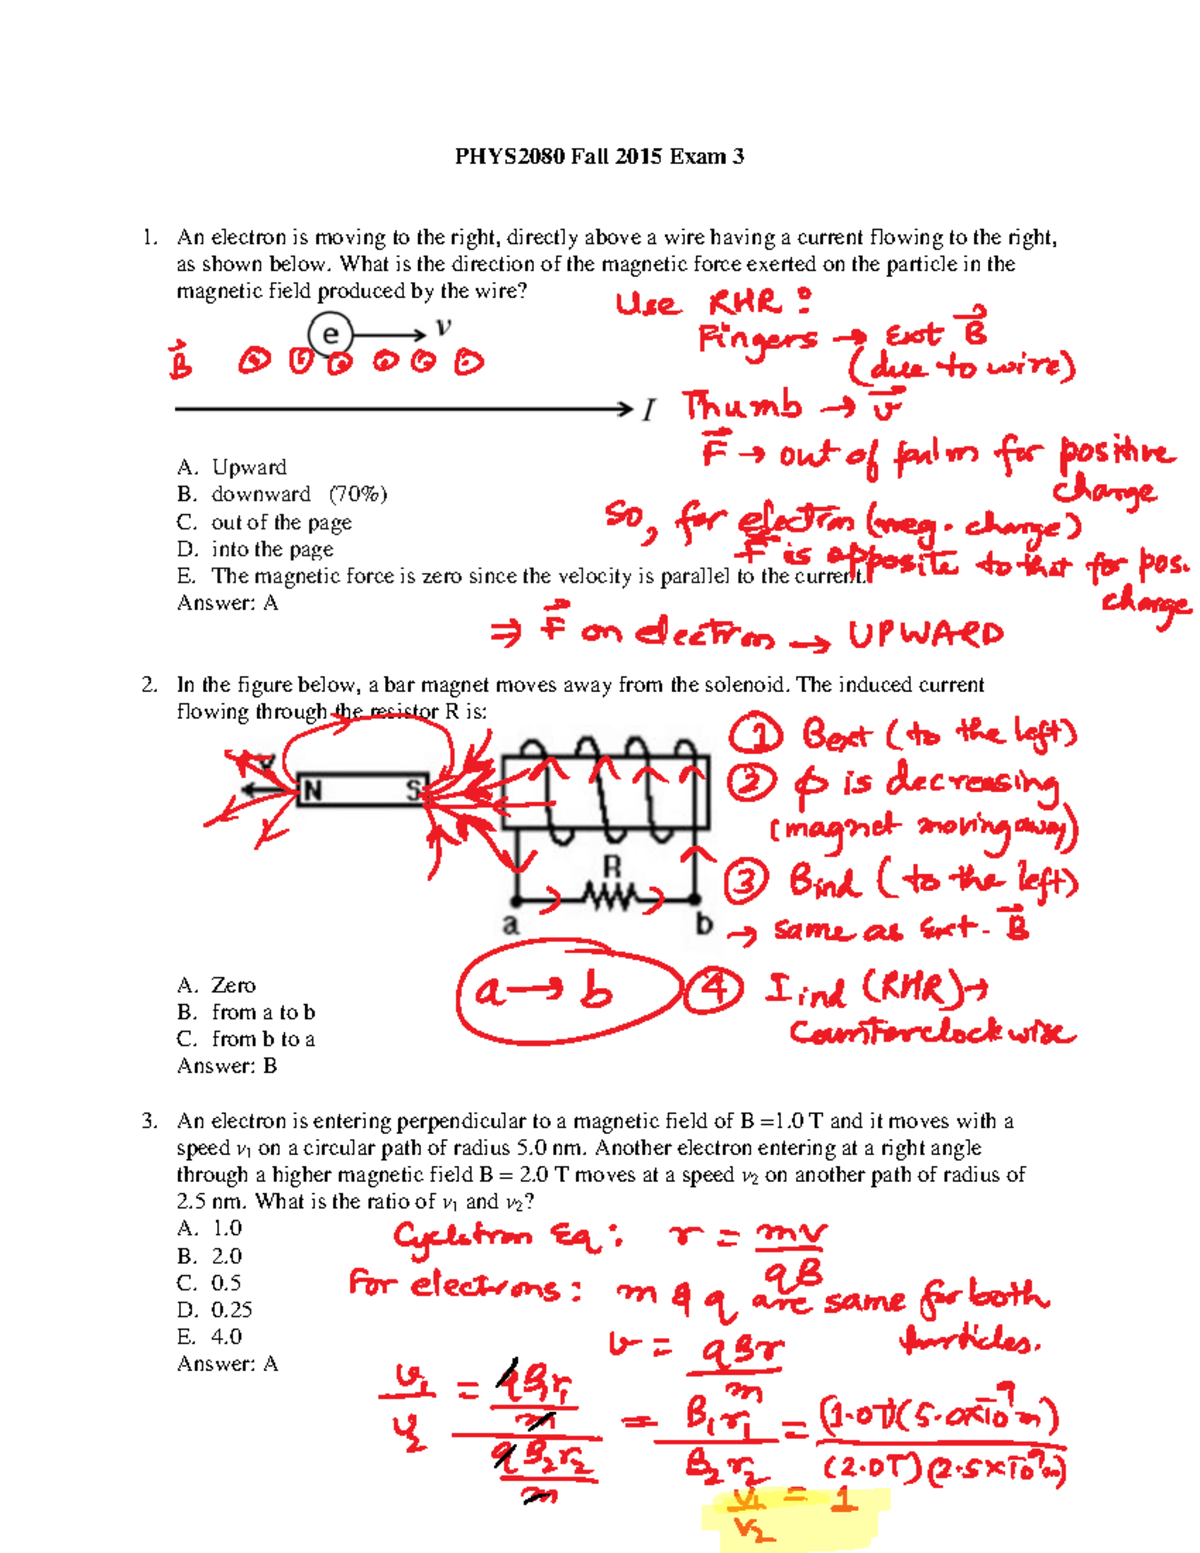 PHYS2080 Fall 2015 Exam 3
1. An electron is moving to the right, directly above a wire having a current flowing to the right,
as shown below. What is the direction of the magnetic force exerted on the particle in the
magnetic field produced by the wire?
Use RHR:
e v
Fingers → Ext B
B
(due to wire)
I
Thumb → v
F → out of palm for positive
charge
A. Upward
B. downward (70%)
C. out of the page
D. into the page
E. The magnetic force is zero since the velocity is parallel to the current.
Answer: A
So, for electron (neg. charge)
F is opposite to that for pos.
charge
⇒ F on electron → UPWARD
2. In the figure below, a bar magnet moves away from the solenoid. The induced current
flowing through the resistor R is:
v
N S
R
a b
① Bext (to the left)
② φ is decreasing
(magnet moving away)
③ Bind (to the left)
→ same as Ext. B
④ I ind (RHR) →
Counterclockwise
a → b
A. Zero
B. from a to b
C. from b to a
Answer: B
3. An electron is entering perpendicular to a magnetic field of B =1.0 T and it moves with a
speed v₁ on a circular path of radius 5.0 nm. Another electron entering at a right angle
through a higher magnetic field B = 2.0 T moves at a speed v₂ on another path of radius of
2.5 nm. What is the ratio of v₁ and v₂?
A. 1.0
B. 2.0
C. 0.5
D. 0.25
E. 4.0
Answer: A
Cyclotron Eq: r = mv/qB
For electrons: m & q are same for both
particles.
v = qBr/m
v₁/v₂ = (qB₁r₁/m)/(qB₂r₂/m) = B₁r₁/B₂r₂ = (1.0T)(5.0×10⁻⁹m)/(2.0T)(2.5×10⁻⁹m)
v₁/v₂ = 1